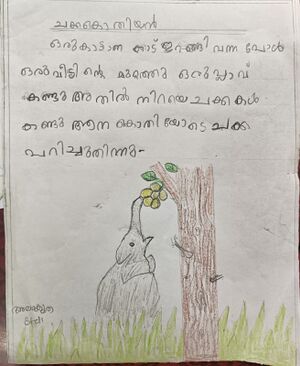 ചക്കകൊതിയൻ
ഒരുകാട്ടാന കാട് ഇറങ്ങി വന്ന പോൾ
ഒരു വീട്ടിന്റെ മുറ്റത്തു ഒരു പ്ലാവ്
കണ്ടു അതിൽ നിറയെ ചക്കകൾ
കണ്ടു ആന കൊതിയോടെ ചക്ക
പറിച്ചുതിന്നു-